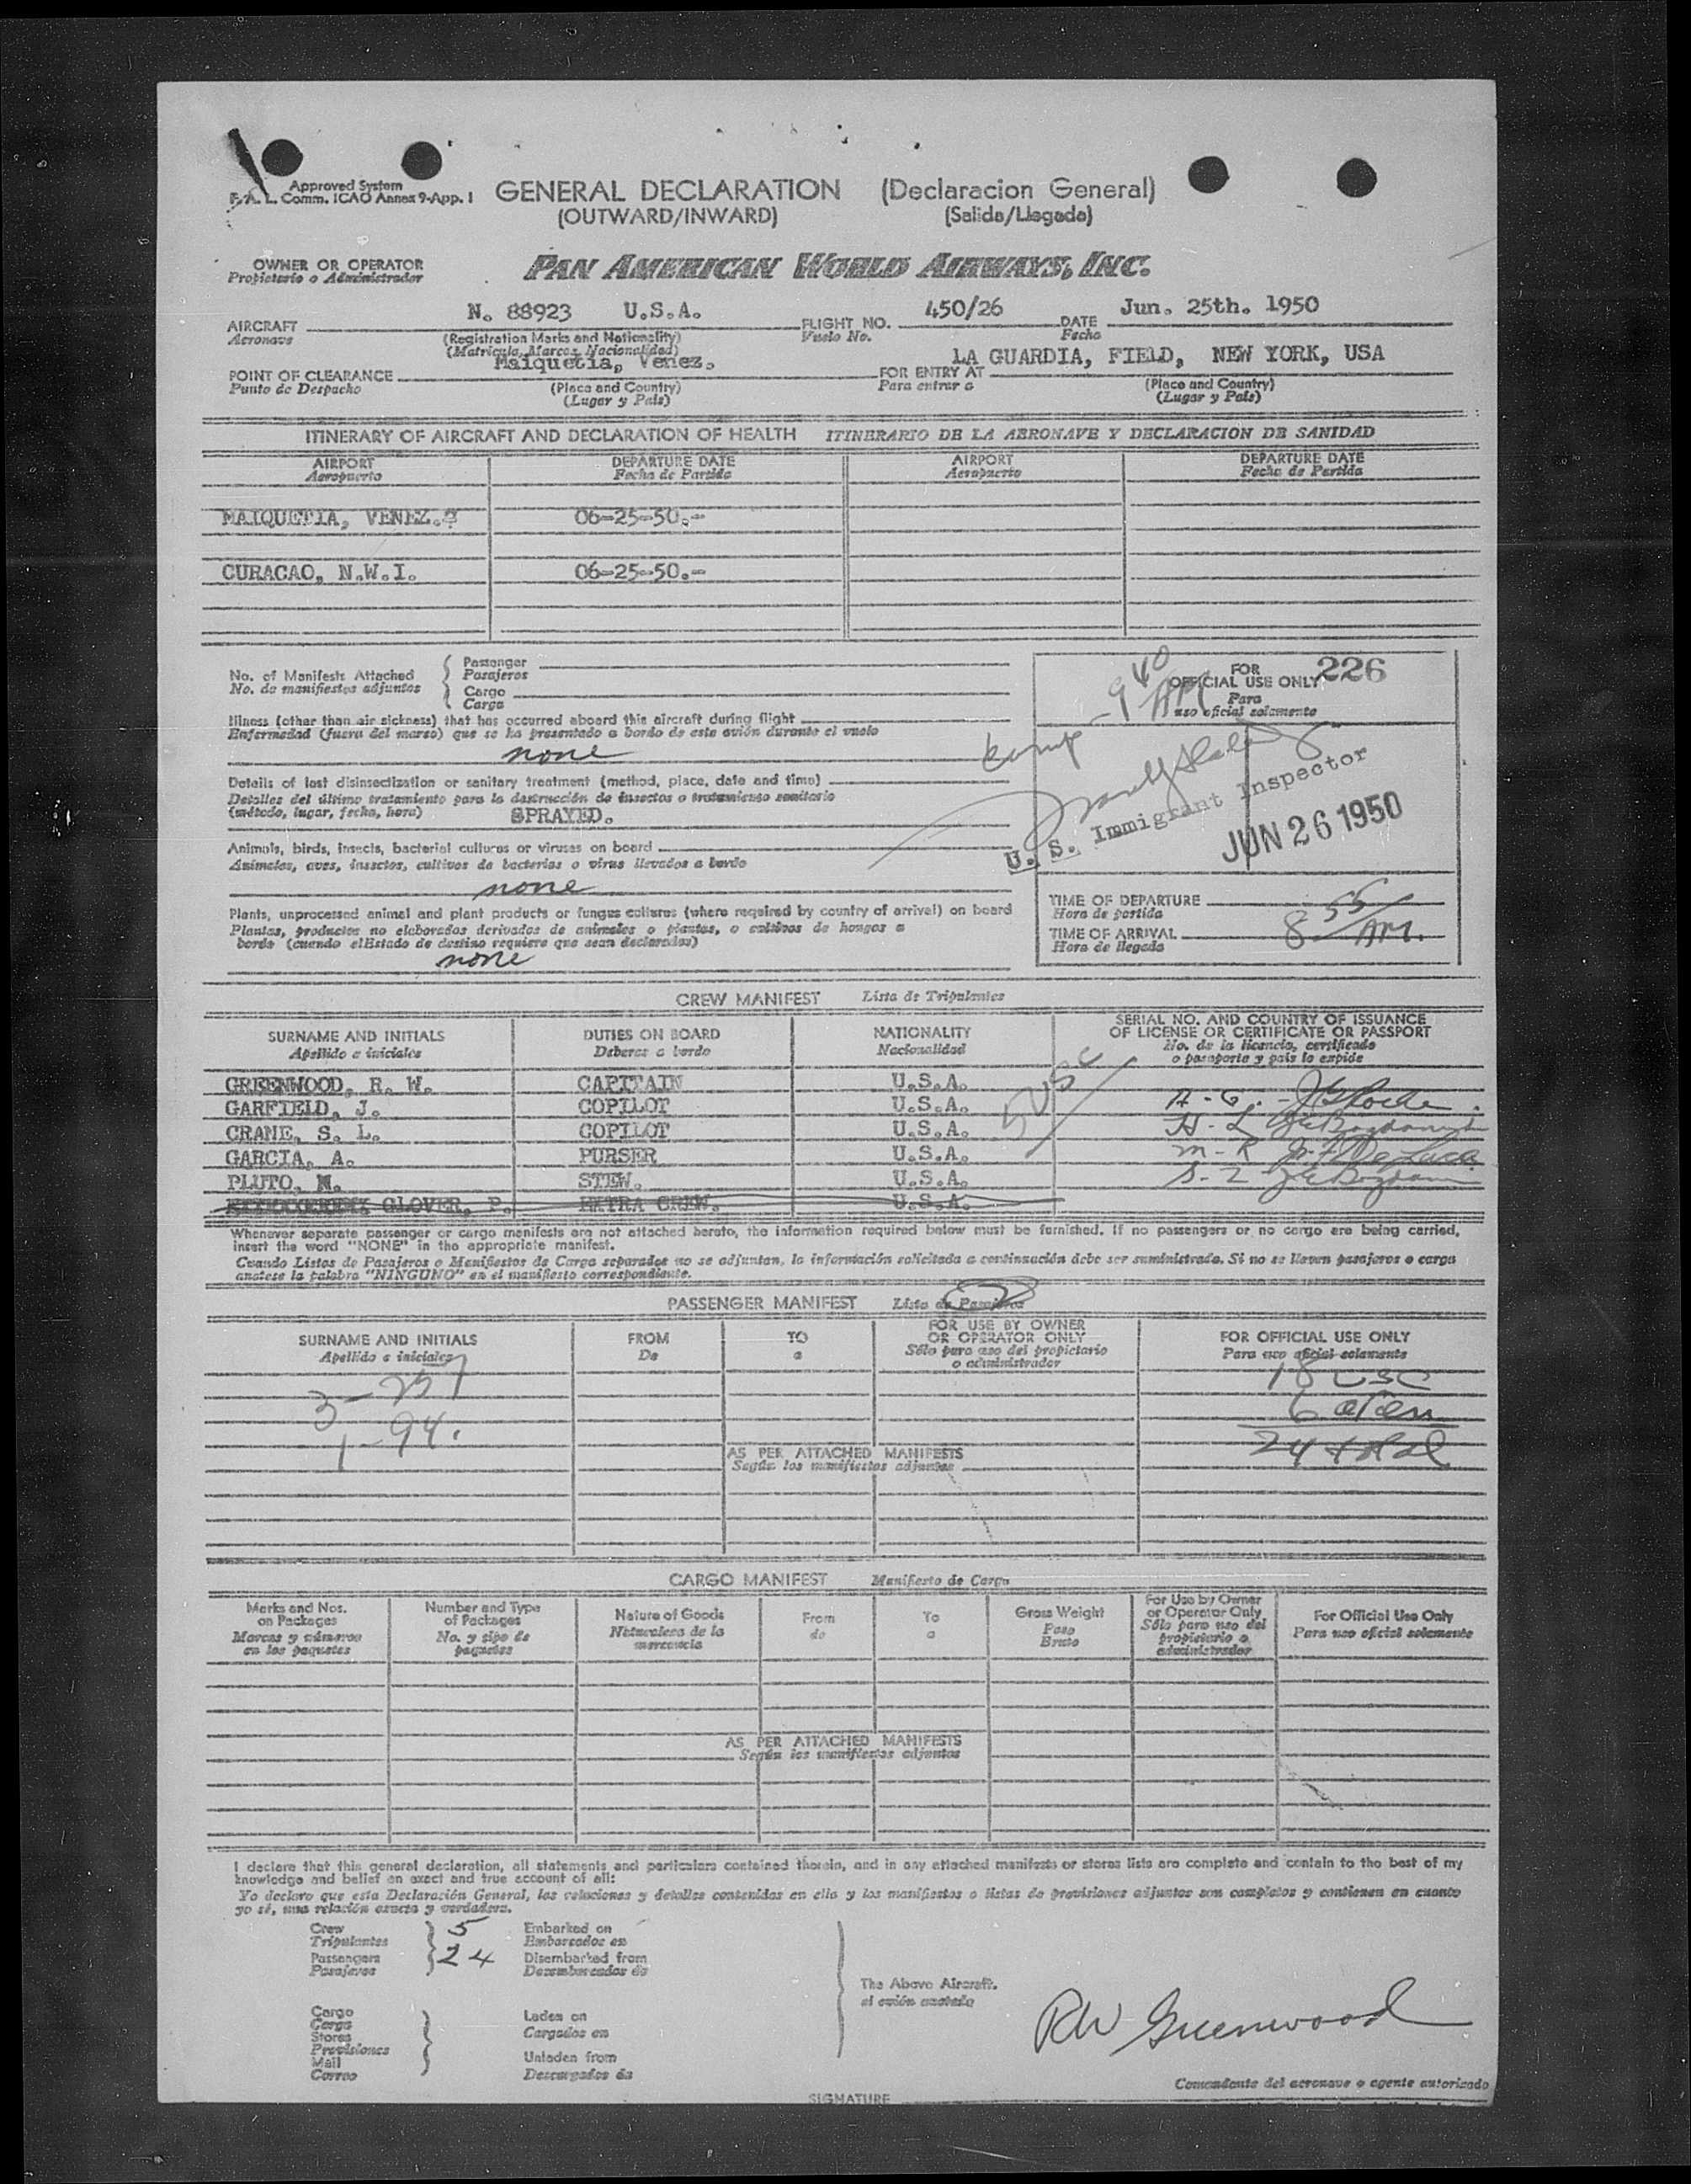 Approved System
F.A.L. Comm. ICAO Annex 9-App. 1
GENERAL DECLARATION (Declaracion General)
(OUTWARD/INWARD) (Salida/Llegada)
OWNER OR OPERATOR
Propietario o Administrador
PAN AMERICAN WORLD AIRWAYS, INC.
N. 88923 U.S.A. 450/26 Jun. 25th. 1950
AIRCRAFT FLIGHT NO. DATE
Aeronave (Registration Marks and Nationality) Vuelo No. Fecha
(Matricula, Marcas, Nacionalidad)
Maiquetia, Venez. LA GUARDIA, FIELD, NEW YORK, USA
POINT OF CLEARANCE FOR ENTRY AT
Punto de Despacho (Place and Country) Para entrar a (Place and Country)
(Lugar y País) (Lugar y País)
ITINERARY OF AIRCRAFT AND DECLARATION OF HEALTH ITINERARIO DE LA AERONAVE Y DECLARACION DE SANIDAD
AIRPORT DEPARTURE DATE AIRPORT DEPARTURE DATE
Aeropuerto Fecha de Partida Aeropuerto Fecha de Partida
MAIQUETIA, VENEZ. 06-25-50.-
CURACAO, N.W.I. 06-25-50.-
No. of Manifests Attached
No. de manifiestos adjuntos
Passenger
Pasajeros
Cargo
Carga
FOR
OFFICIAL USE ONLY
Para
uso oficial solamente
226
9 40 AM
Illness (other than air sickness) that has occurred aboard this aircraft during flight
Enfermedad (fuera del mareo) que se ha presentado a bordo de este avión durante el vuelo
none
Details of last disinsectization or sanitary treatment (method, place, date and time)
Detalles del último tratamiento para la destrucción de insectos o tratamiento sanitario
(método, lugar, fecha, hora) SPRAYED.
U. S. Immigrant Inspector
JUN 26 1950
Animals, birds, insects, bacterial cultures or viruses on board
Animales, aves, insectos, cultivos de bacterias o virus llevados a bordo
none
Plants, unprocessed animal and plant products or fungus cultures (where required by country of arrival) on board
Plantas, productos no elaborados derivados de animales o plantas, o cultivos de hongos a
bordo (cuando el Estado de destino requiere que sean declarados)
none
TIME OF DEPARTURE
Hora de partida
TIME OF ARRIVAL 8 55 AM.
Hora de llegada
CREW MANIFEST Lista de Tripulantes
SURNAME AND INITIALS DUTIES ON BOARD NATIONALITY SERIAL NO. AND COUNTRY OF ISSUANCE
OF LICENSE OR CERTIFICATE OR PASSPORT
Apellido e iniciales Deberes a bordo Nacionalidad No. de la licencia, certificado
o pasaporte y país lo expide
GREENWOOD, R. W. CAPITAIN U.S.A.
GARFIELD, J. COPILOT U.S.A.
CRANE, S. L. COPILOT U.S.A.
GARCIA, A. PURSER U.S.A.
PLUTO, N. STEW. U.S.A.
GLOVER, P. EXTRA CREW. U.S.A.
5 USC
A-G.
H-L
M-R
S-Z
Whenever separate passenger or cargo manifests are not attached hereto, the information required below must be furnished. If no passengers or no cargo are being carried,
insert the word "NONE" in the appropriate manifest.
Cuando Listas de Pasajeros o Manifiestos de Carga separados no se adjuntan, la información solicitada a continuación debe ser suministrada. Si no se llevan pasajeros o carga
anotese la palabra "NINGUNO" en el manifiesto correspondiente.
PASSENGER MANIFEST Lista de Pasajeros
SURNAME AND INITIALS FROM TO FOR USE BY OWNER
OR OPERATOR ONLY FOR OFFICIAL USE ONLY
Apellido e iniciales De a Sólo para uso del propietario
o administrador Para uso oficial solamente
18 USC
6 alien
24 total
1-94.
AS PER ATTACHED MANIFESTS
Según los manifiestos adjuntos
CARGO MANIFEST Manifiesto de Carga
Marks and Nos.
on Packages
Marcas y números
en los paquetes
Number and Type
of Packages
No. y tipo de
paquetes
Nature of Goods
Naturaleza de la
mercancia
From
de
To
a
Gross Weight
Peso
Bruto
For Use by Owner
or Operator Only
Sólo para uso del
propietario o
administrador
For Official Use Only
Para uso oficial solamente
AS PER ATTACHED MANIFESTS
Según los manifiestos adjuntos
I declare that this general declaration, all statements and particulars contained therein, and in any attached manifests or stores lists are complete and contain to the best of my
knowledge and belief an exact and true account of all:
Yo declaro que esta Declaración General, las relaciones y detalles contenidas en ella y los manifiestos o listas de provisiones adjuntos son completos y contienen en cuanto
yo sé, una relación exacta y verdadera.
Crew 5 Embarked on
Tripulantes Embarcados en
Passengers 24 Disembarked from
Pasajeros Desembarcados de
The Above Aircraft.
el avión anotado
Cargo Laden on
Carga Cargados en
Stores
Provisiones
Mail Unladen from
Correo Descargados de
RW Greenwood
Comandante del aeronave o agente autorizado
SIGNATURE